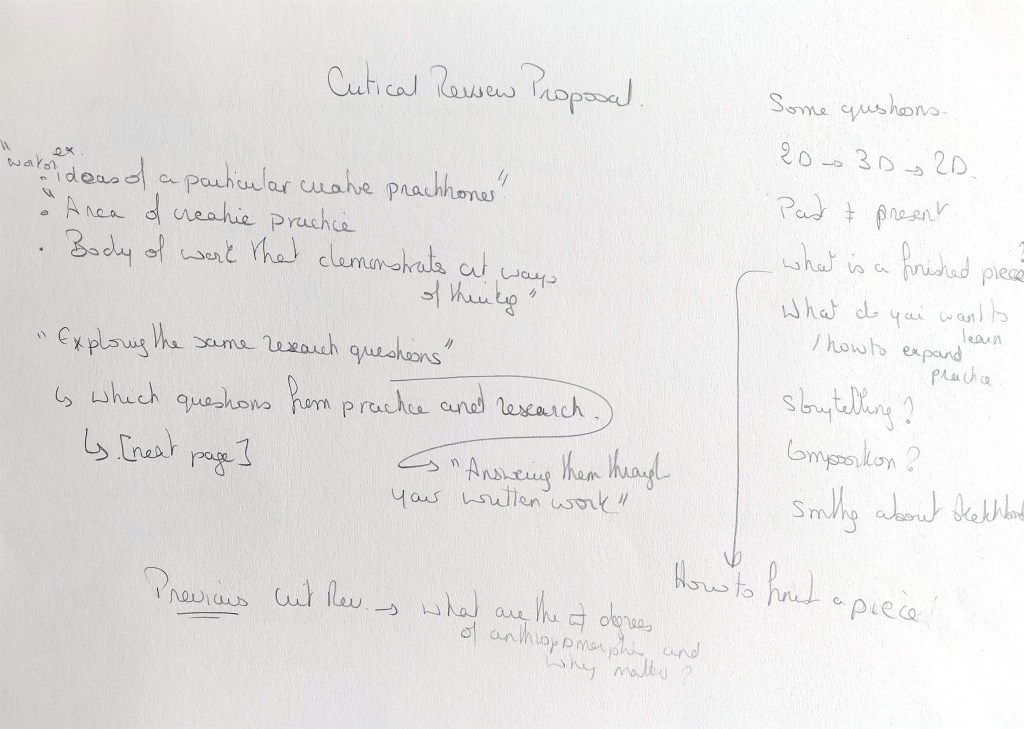 Critical Review Proposal.
ex.
"
• ideas of a particular creative practitioner"
"
• Area of creative practice
• Body of work that demonstrates crit ways
of thinking"
"Exploring the same research questions"
↳ which questions from practice and research.
↳ [next page]
→ "Answering them through
your written work"
Previous Crit Rev. → what are the ≠ degrees
of anthropomorphic and
why matter?
Some questions.
2D → 3D → 2D.
Past ≠ present
what is a finished piece?
What do you want to
learn
/ how to expand
practice
Storytelling?
Composition?
Smthg about Sketchbo
How to finish a piece?